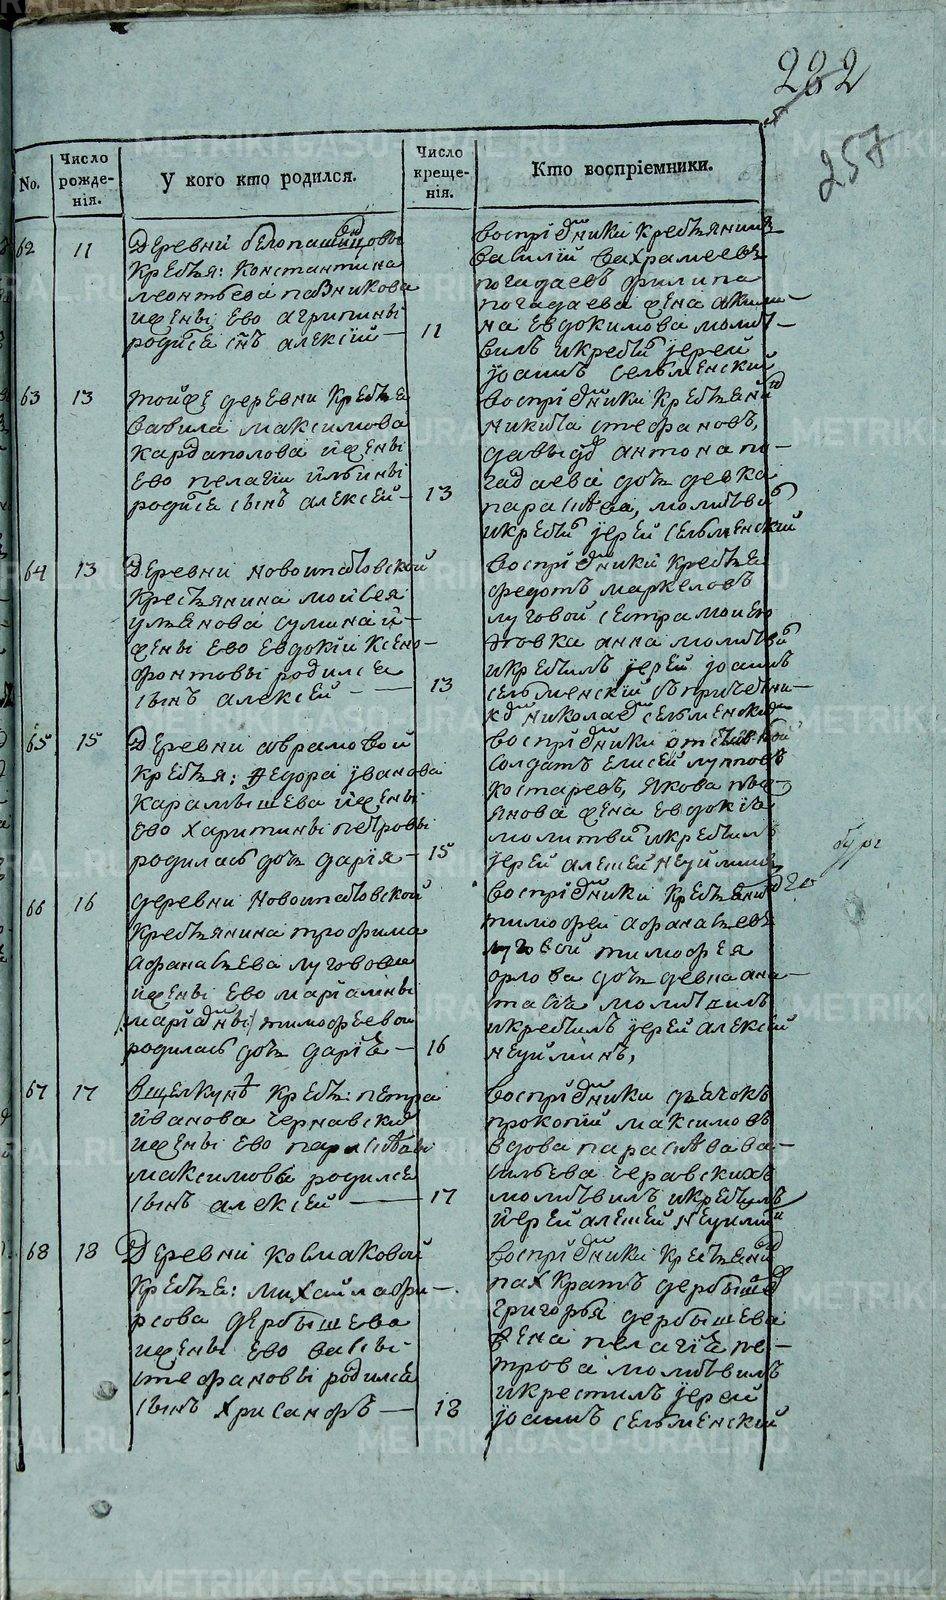 282
257
No.
Число рожде-нія.
У кого кто родился.
Число креще-нія.
Кто воспріемники.
62 11
Деревни белопашинцовы
Кресть: Константина
леонтьева павникова
ижены ево агрипины
родися снъ алексій — 11
воспріемники крестьянинъ
вавилій вахрамеевъ
погадаевъ филипа
погадаева жена акили-
на евдокимова молит-
вилъ икрестил іерей
іоаннъ сельменскій
63 13
тойже деревни кресть
вавила максимова
кардаполова ижены
ево пелагіи ильины
родися сынъ алексей — 13
воспріемники крестьянин
никита стефановъ,
давыд антона по-
гадаева дочь девка
параскева, молитвил
икрестил іерей сельменскій
64 13
Деревни новоипатовской
крестьянина моисея
ульянова сулина и-
жены ево евдокіи ксено-
фонтовы родился
сынъ алексей — — 13
воспріемники кресть
федотъ маркеловъ
луговой сестра моисея
девка анна молитвил
икрестилъ іерей іоаннъ
сельменскій съпричетни-
ком николаем сельменским
65 15
Деревни аврамовой
кресть: Федора іванова
карамышева ижены
ево харитины петровы
родилась дочь дарія — 15
воспріемники отставной
солдатъ елисей
костаревъ, якова
янова жена евдокія
молитвил икрестилъ
іерей алексей неуйминъ
бург
66 16
деревни новоипатовской
крестьянина трофима
афанасьева луговова
ижены ево маріамны
маріамны тимофеевой
родилась дочь дарія — 16
воспріемники крестьянин
тимофей афанасьевъ
луговой тимофея
орлова дочь девка ана-
стасія молитвилъ
икрестилъ іерей алексій
неуйминъ,
67 17
Вщелкунѣ кресть: петра
иванова чернавских
ижены ево параскевы
максимовы родился
сынъ алексей — 17
воспріемники дьячокъ
прокопій максимовъ
вдова параскева ва-
сильева чернавскихъ
молитвилъ икрестилъ
іерей алексей неуйминъ
68 18
Деревни космаковой
кресть: михайла фи-
рсова дербышева
ижены ево васы
стефановы родился
сынъ хрисанфъ — 18
воспріемники крестьянин
панкратъ дербышев
григорья дербышева
жена пелагія пе-
трова молитвилъ
икрестилъ іерей
іоаннъ сельменскій
METRIKI.GASO-URAL.RU